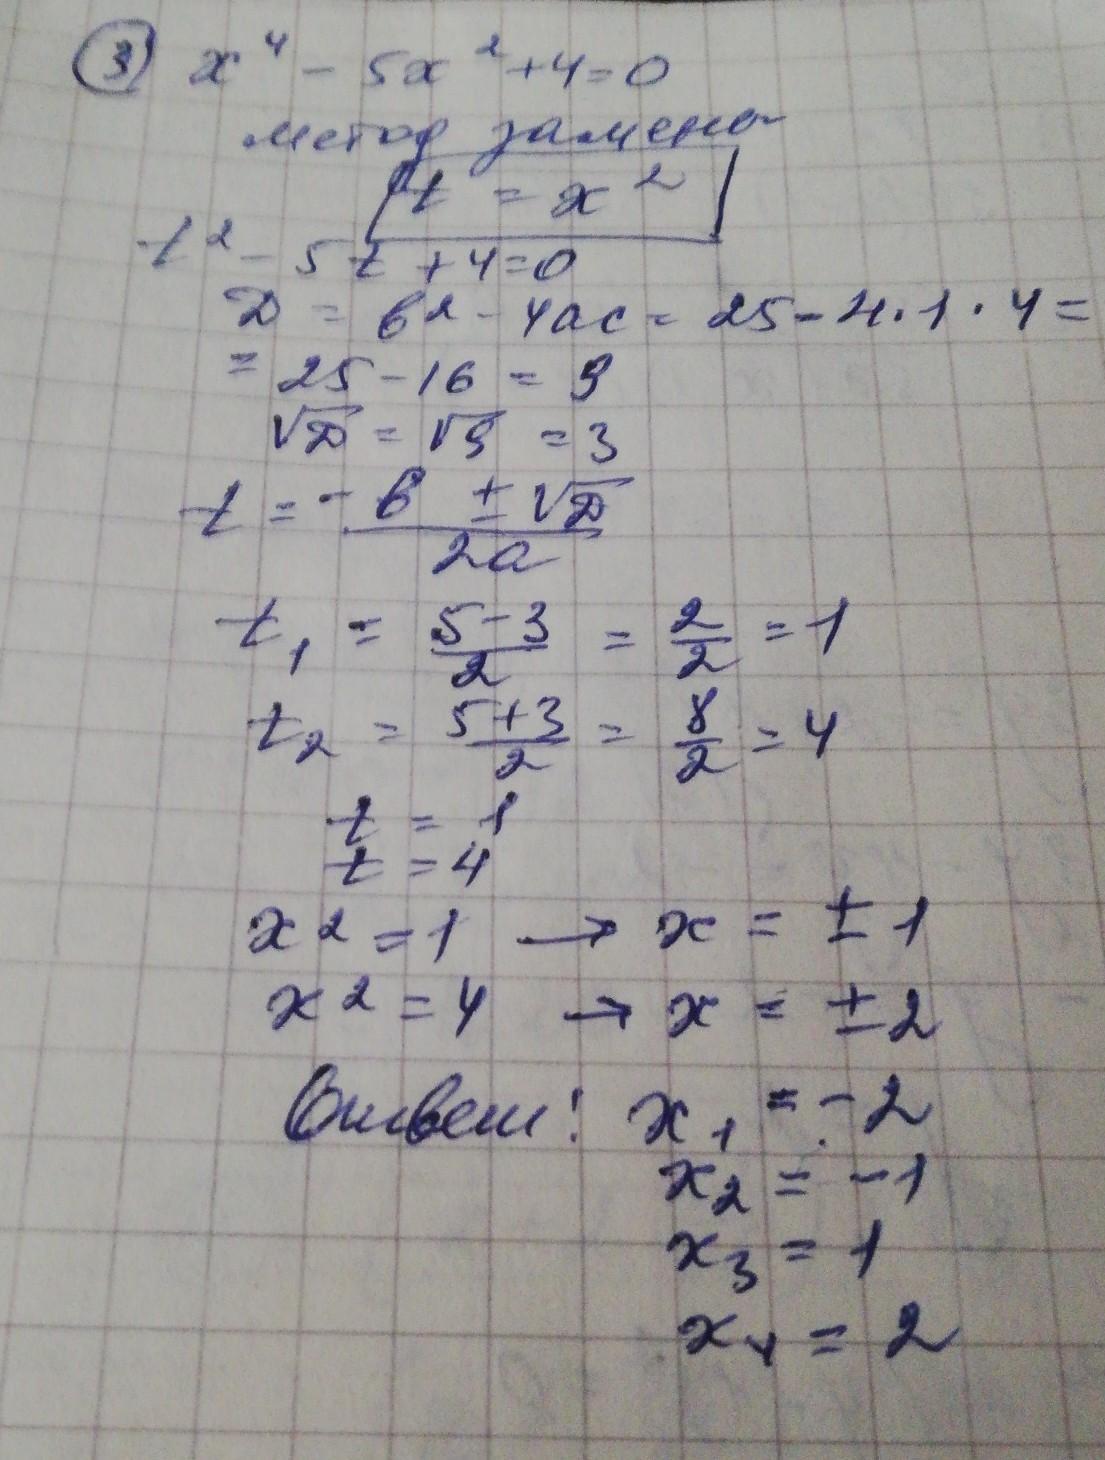 ③ x⁴ - 5x² + 4 = 0
метод замены
t = x²
t² - 5t + 4 = 0
D = b² - 4ac = 25 - 4·1·4 =
= 25 - 16 = 9
√D = √9 = 3
t = (-b ± √D)/2a
t₁ = (5-3)/2 = 2/2 = 1
t₂ = (5+3)/2 = 8/2 = 4
t = 1
t = 4
x² = 1 → x = ±1
x² = 4 → x = ±2
Ответ: x₁ = -2
x₂ = -1
x₃ = 1
x₄ = 2